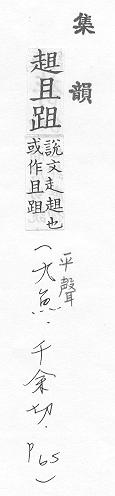 集韻
趄且跙
說文走趄也
或作且跙
(平聲
九魚.千余切.
P65)